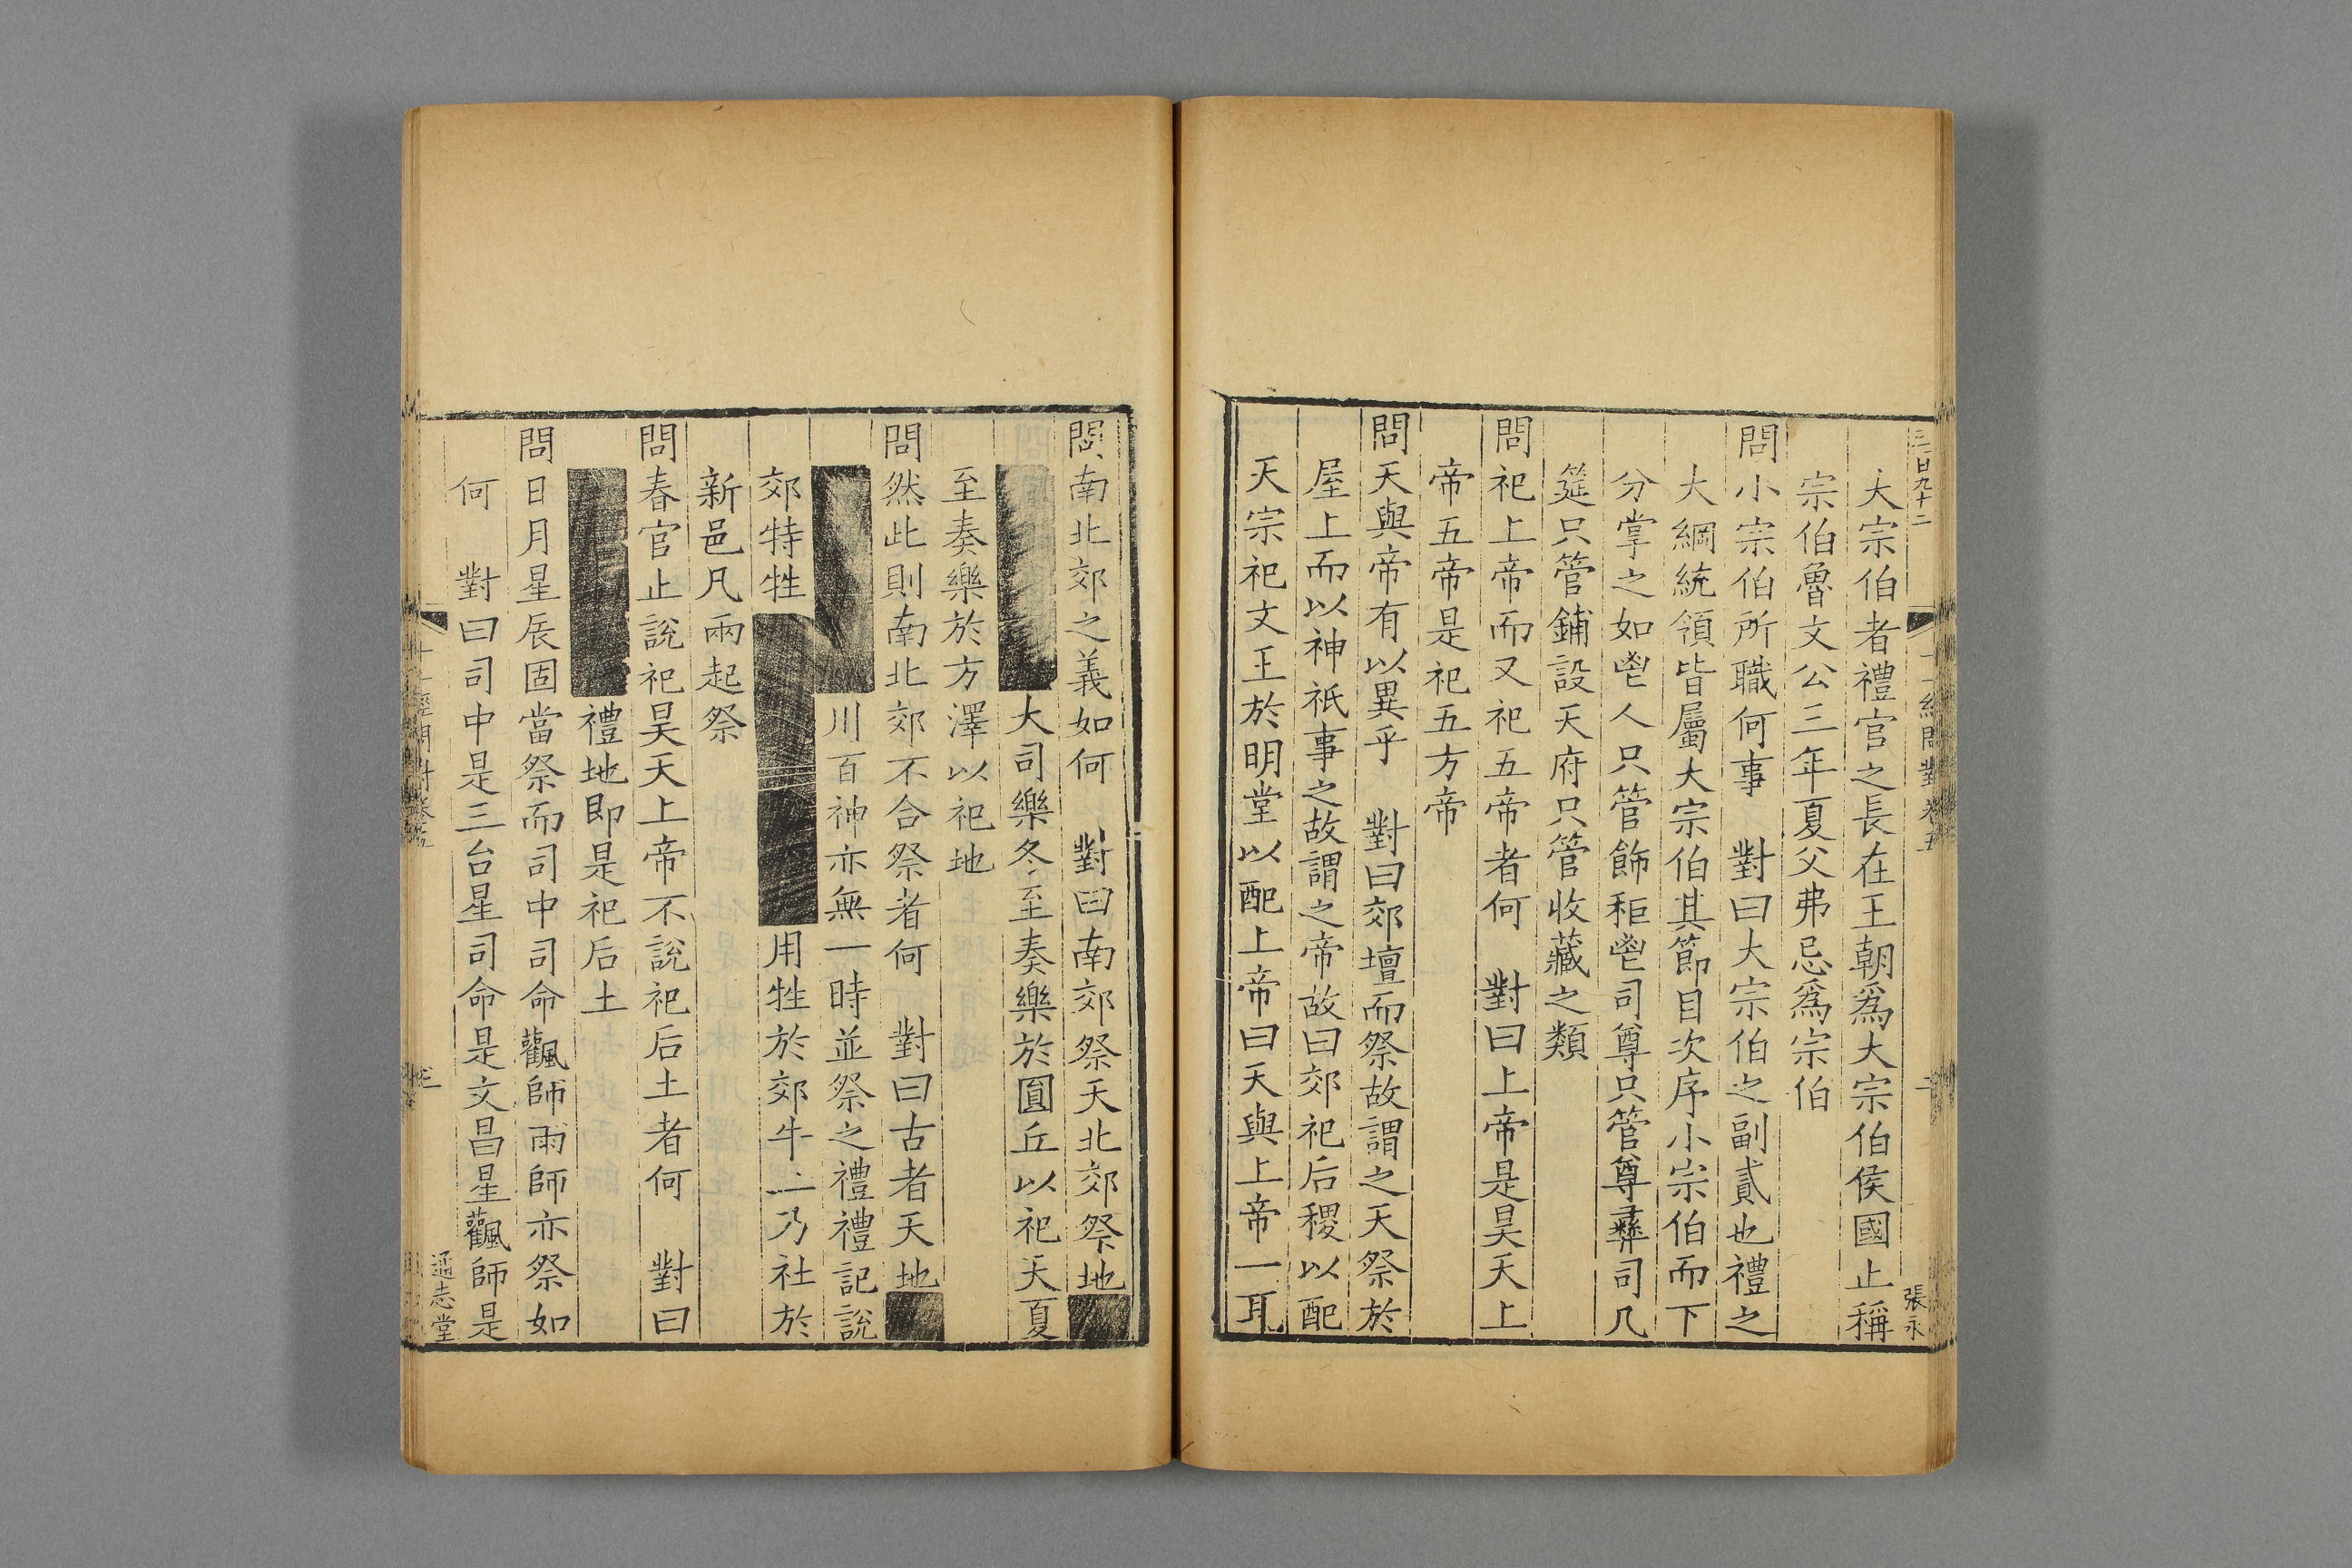 三百九十二
十一經問對卷五
張永
大宗伯者禮官之長在王朝爲大宗伯侯國止稱
宗伯魯文公三年夏父弗忌爲宗伯
問小宗伯所職何事 對曰大宗伯之副貳也禮之
大綱統領皆屬大宗伯其節目次序小宗伯而下
分掌之如鬯人只管飾秬鬯司尊只管尊彝司几
筵只管鋪設天府只管收藏之類
問祀上帝而又祀五帝者何 對曰上帝是昊天上
帝五帝是祀五方帝
問天與帝有以異乎 對曰郊壇而祭故謂之天祭於
屋上而以神祇事之故謂之帝故曰郊祀后稷以配
天宗祀文王於明堂以配上帝曰天與上帝一耳
問南北郊之義如何 對曰南郊祭天北郊祭地
大司樂冬至奏樂於圓丘以祀天夏
至奏樂於方澤以祀地
問然此則南北郊不合祭者何 對曰古者天地
川百神亦無一時並祭之禮禮記說
郊特牲 用牲於郊牛二乃社於
新邑凡兩起祭
問春官止說祀昊天上帝不說祀后土者何 對曰
禮地即是祀后土
問日月星辰固當祭而司中司命飌師雨師亦祭如
何 對曰司中是三台星司命是文昌星飌師是
通志堂